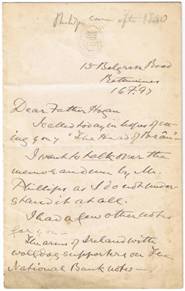 13 Belgrave Road
Rathmines
16.7.97
Dear Father Hogan
I called today in hopes of
seeing you
I want to talk over the
memorandum by Mr.
Phillips as I do not under
stand it at all.
I had a few other notes
for you
The arms of Ireland with
supporters on the
National Bank notes